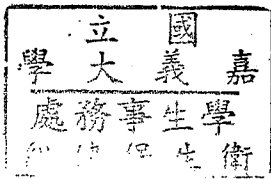 國立
嘉義大學
學生事務處
衛生